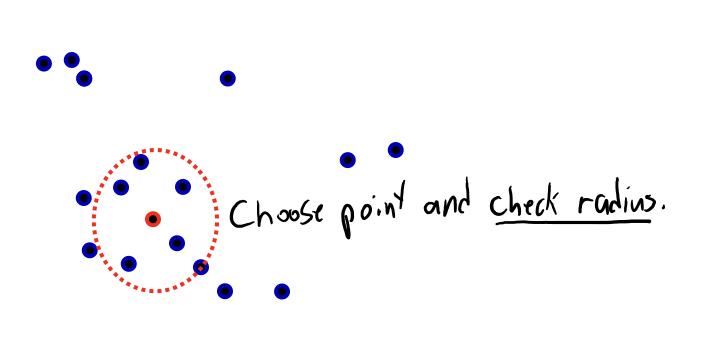 Choose point and check radius.